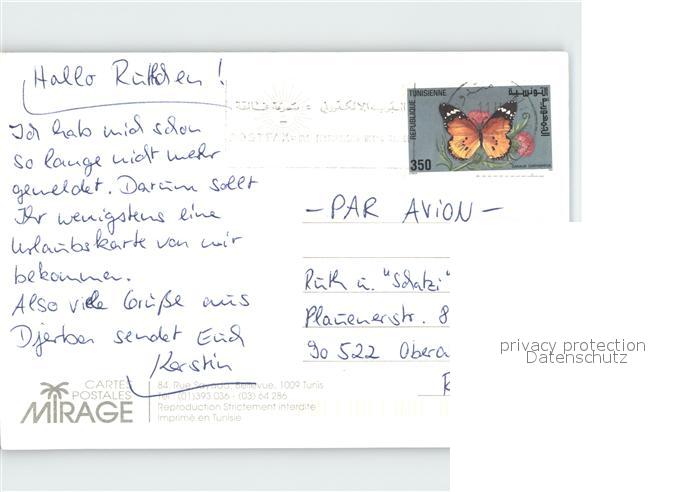 Hallo Rüthchen!
Ich hab mich schon
so lange nicht mehr
gemeldet. Darum sollt
Ihr wenigstens eine
Urlaubskarte von mir
bekommen.
Also viele Grüße aus
Djerba sendet Euch
Kerstin
REPUBLIQUE TUNISIENNE
350
- PAR AVION -
Ruth u. "Schatzi"
Plauenerstr. 8
90 522 Obera
privacy protection
Datenschutz
CARTES
POSTALES
MIRAGE
84, Rue Bellevue, 1009 Tunis
Tél. (01) 393.036 - (03) 64 286
Reproduction Strictement interdite
Imprimé en Tunisie